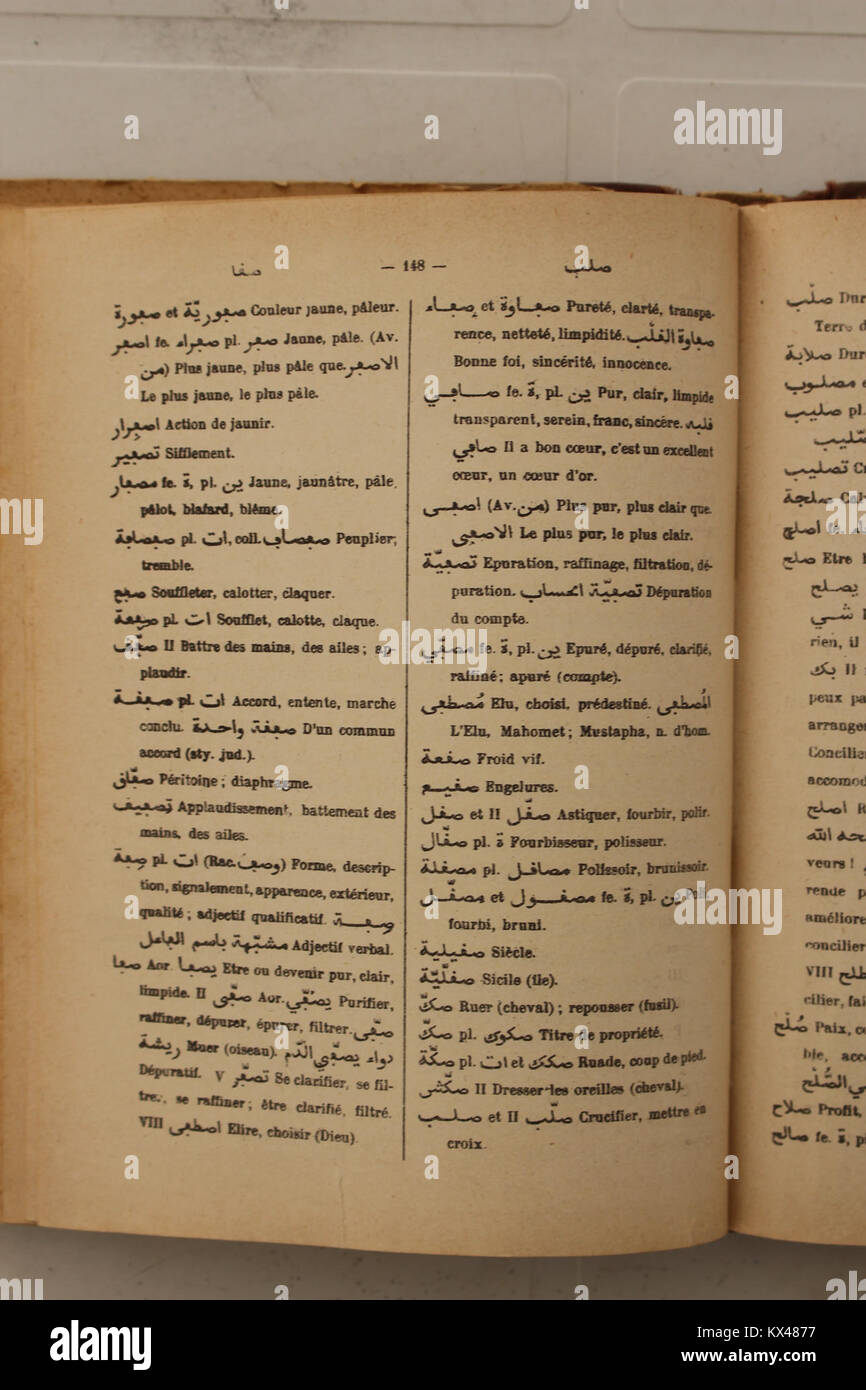 صفا — 148 — صلب
صفورة et صفوريّة Couleur jaune, pâleur.
اصفر fe. صفراء pl. صفر Jaune, pâle. (Av.
من) Plus jaune, plus pâle que. الاصفر
Le plus jaune, le plus pâle.
اصفرار Action de jaunir.
تصفير Sifflement.
مصفار fe. ة, pl. ين Jaune, jaunâtre, pâle,
pâlot, blafard, blême.
صفصافة pl. ات, coll. صفصاف Peuplier;
tremble.
صفع Souffleter, calotter, claquer.
صفعة pl. ات Soufflet, calotte, claque.
صفّف II Battre des mains, des ailes; ap-
plaudir.
صفقة pl. ات Accord, entente, marche
conclu. صفقة واحدة D'un commun
accord (sty. jud.).
صفّاق Péritoine; diaphragme.
تصفيف Applaudissement, battement des
mains, des ailes.
صفة pl. ات (Rac. وصف) Forme, descrip-
tion, signalement, apparence, extérieur,
qualité; adjectif qualificatif. صفة
مشبّهة باسم الفاعل Adjectif verbal.
صفا Aor. يصفا Etre ou devenir pur, clair,
limpide. II صفّى Aor. يصفّي Purifier,
raffiner, dépurer, épurer, filtrer. صفّى
ريشة Muer (oiseau). دواء يصفّي الدّم
Dépuratif. V تصفّر Se clarifier, se fil-
trer, se raffiner; être clarifié, filtré.
VIII اصطفى Elire, choisir (Dieu).
صفاء et صفاوة Pureté, clarté, transpa-
rence, netteté, limpidité. صفاوة القلب
Bonne foi, sincérité, innocence.
صافي fe. ة, pl. ين Pur, clair, limpide
transparent, serein, franc, sincère. قلبه
صافي Il a bon cœur, c'est un excellent
cœur, un cœur d'or.
اصفى (Av. من) Plus pur, plus clair que.
الاصفى Le plus pur, le plus clair.
تصفيّة Epuration, raffinage, filtration, dé-
puration. تصفيّة الحساب Dépuration
du compte.
مصفّي fe. ة, pl. ين Epuré, dépuré, clarifié,
raffiné; apuré (compte).
مُصطفى Elu, choisi, prédestiné. المُصطفى
L'Elu, Mahomet; Mustapha, n. d'hom.
صقعة Froid vif.
صقيع Engelures.
صقل et II صقّل Astiquer, fourbir, polir.
صقّال pl. ة Fourbisseur, polisseur.
مصقلة pl. مصاقل Polissoir, brunissoir.
مصقّل et مصقول fe. ة, pl. ين Poli,
fourbi, bruni.
صقيلية Siècle.
صقلّيّة Sicile (île).
صكّ Ruer (cheval); repousser (fusil).
صكّ pl. صكوك Titre de propriété.
صكّة pl. ات et صكك Ruade, coup de pied.
صكّش II Dresser les oreilles (cheval).
صلب et II صلّب Crucifier, mettre en
croix.
صلّب Dur
Terre d
صلابة Dur
مصلوب e
صليب pl.
صّليب
تصليب C
صلجة Cal
اصلج fe.
صلح Etre
يصلح
شي
rien, il
بك II
peux pa
arranger
Concilie
accomod
اصلح R
حه الله
veurs!
rende p
améliore
concilier
VIII طلح
cilier, fai
صُلح Paix, c
ble, acc
في الصُّلح
صلاح Profit,
صالح fe. ة, p
alamy
Image ID: KX4877
www.alamy.com